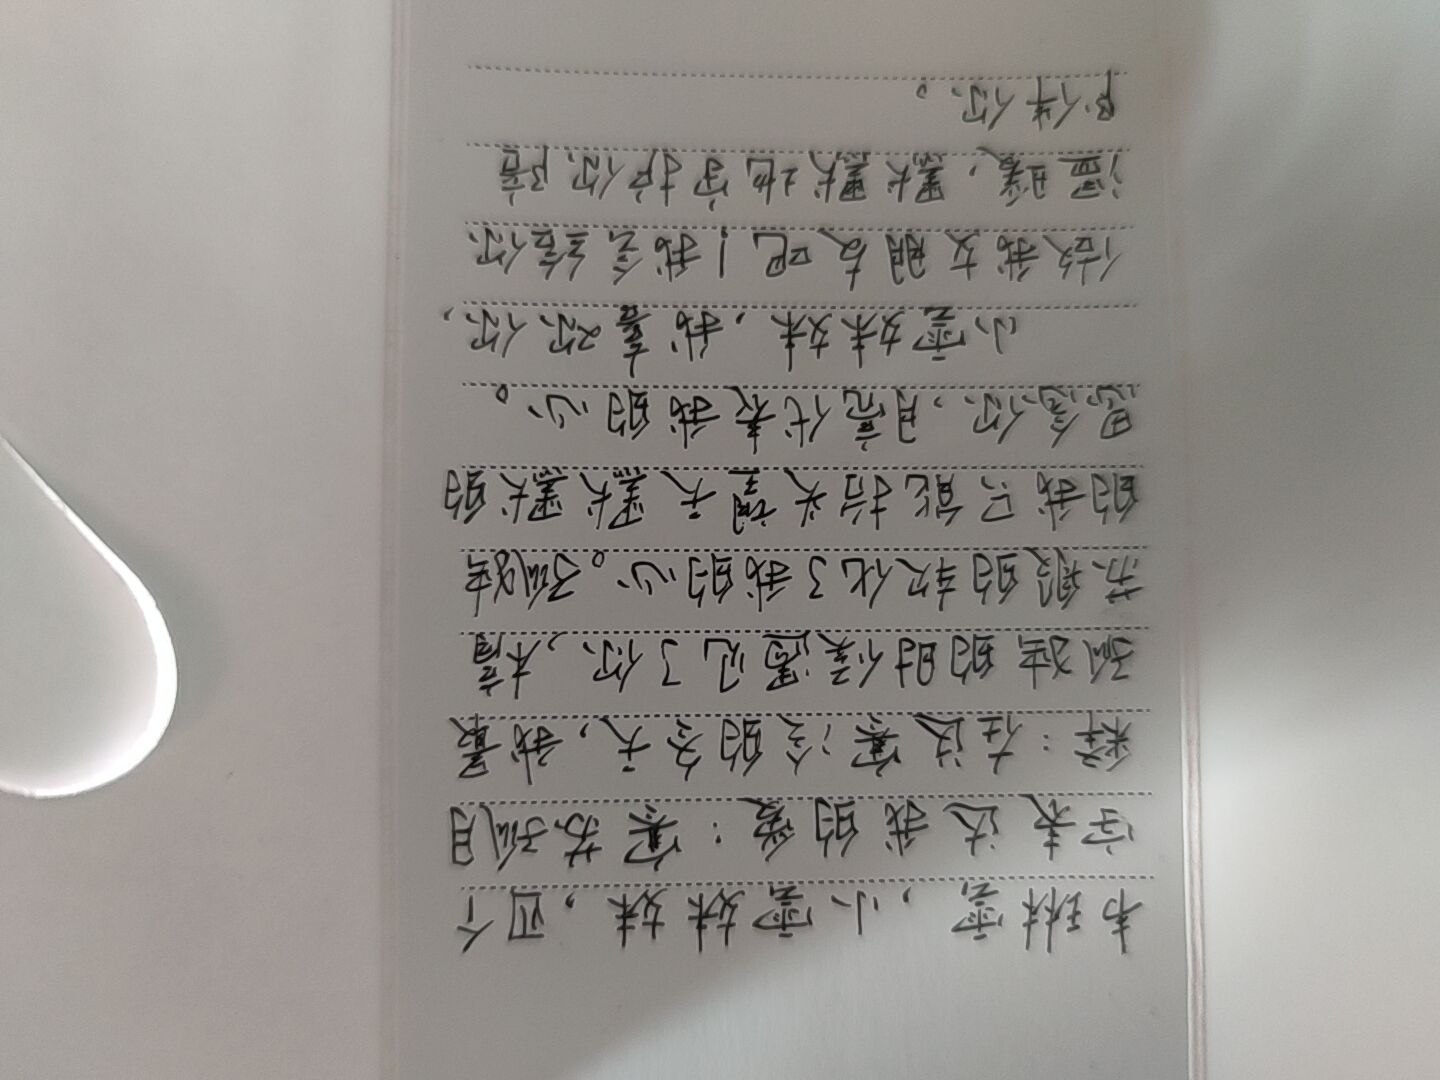 韦琳雲，小雲妹妹，四个
字表达我的爱：寒苏孤月
释：在这寒冷的冬天，我最
孤独的时侯遇见了你，樯
苏般的软化了我的心。孤独
的我只能抬头望天默默的
思念你，月亮代表我的心。
小雲妹妹，我喜欢你，
做我女朋友吧！我会给你
温暖，默默地守护你陪
伴你。